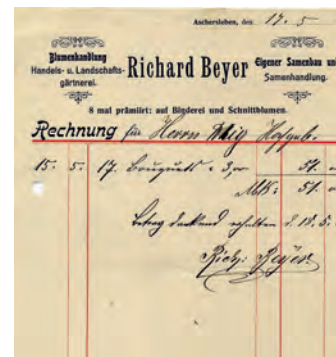 Aschersleben, den 17. 5
Blumenhandlung
Handels- u. Landschafts-
gärtnerei.
Richard Beyer
Eigener Samenbau un
Samenhandlung.
8 mal prämiirt: auf Binderei und Schnittblumen.
Rechnung für Herrn Hofgutb.
15. 5. 17 Bouquets a 3,00 51.
Mk: 51.
Betrag dankend erhalten d. 18. 5.
Rich. Beyer